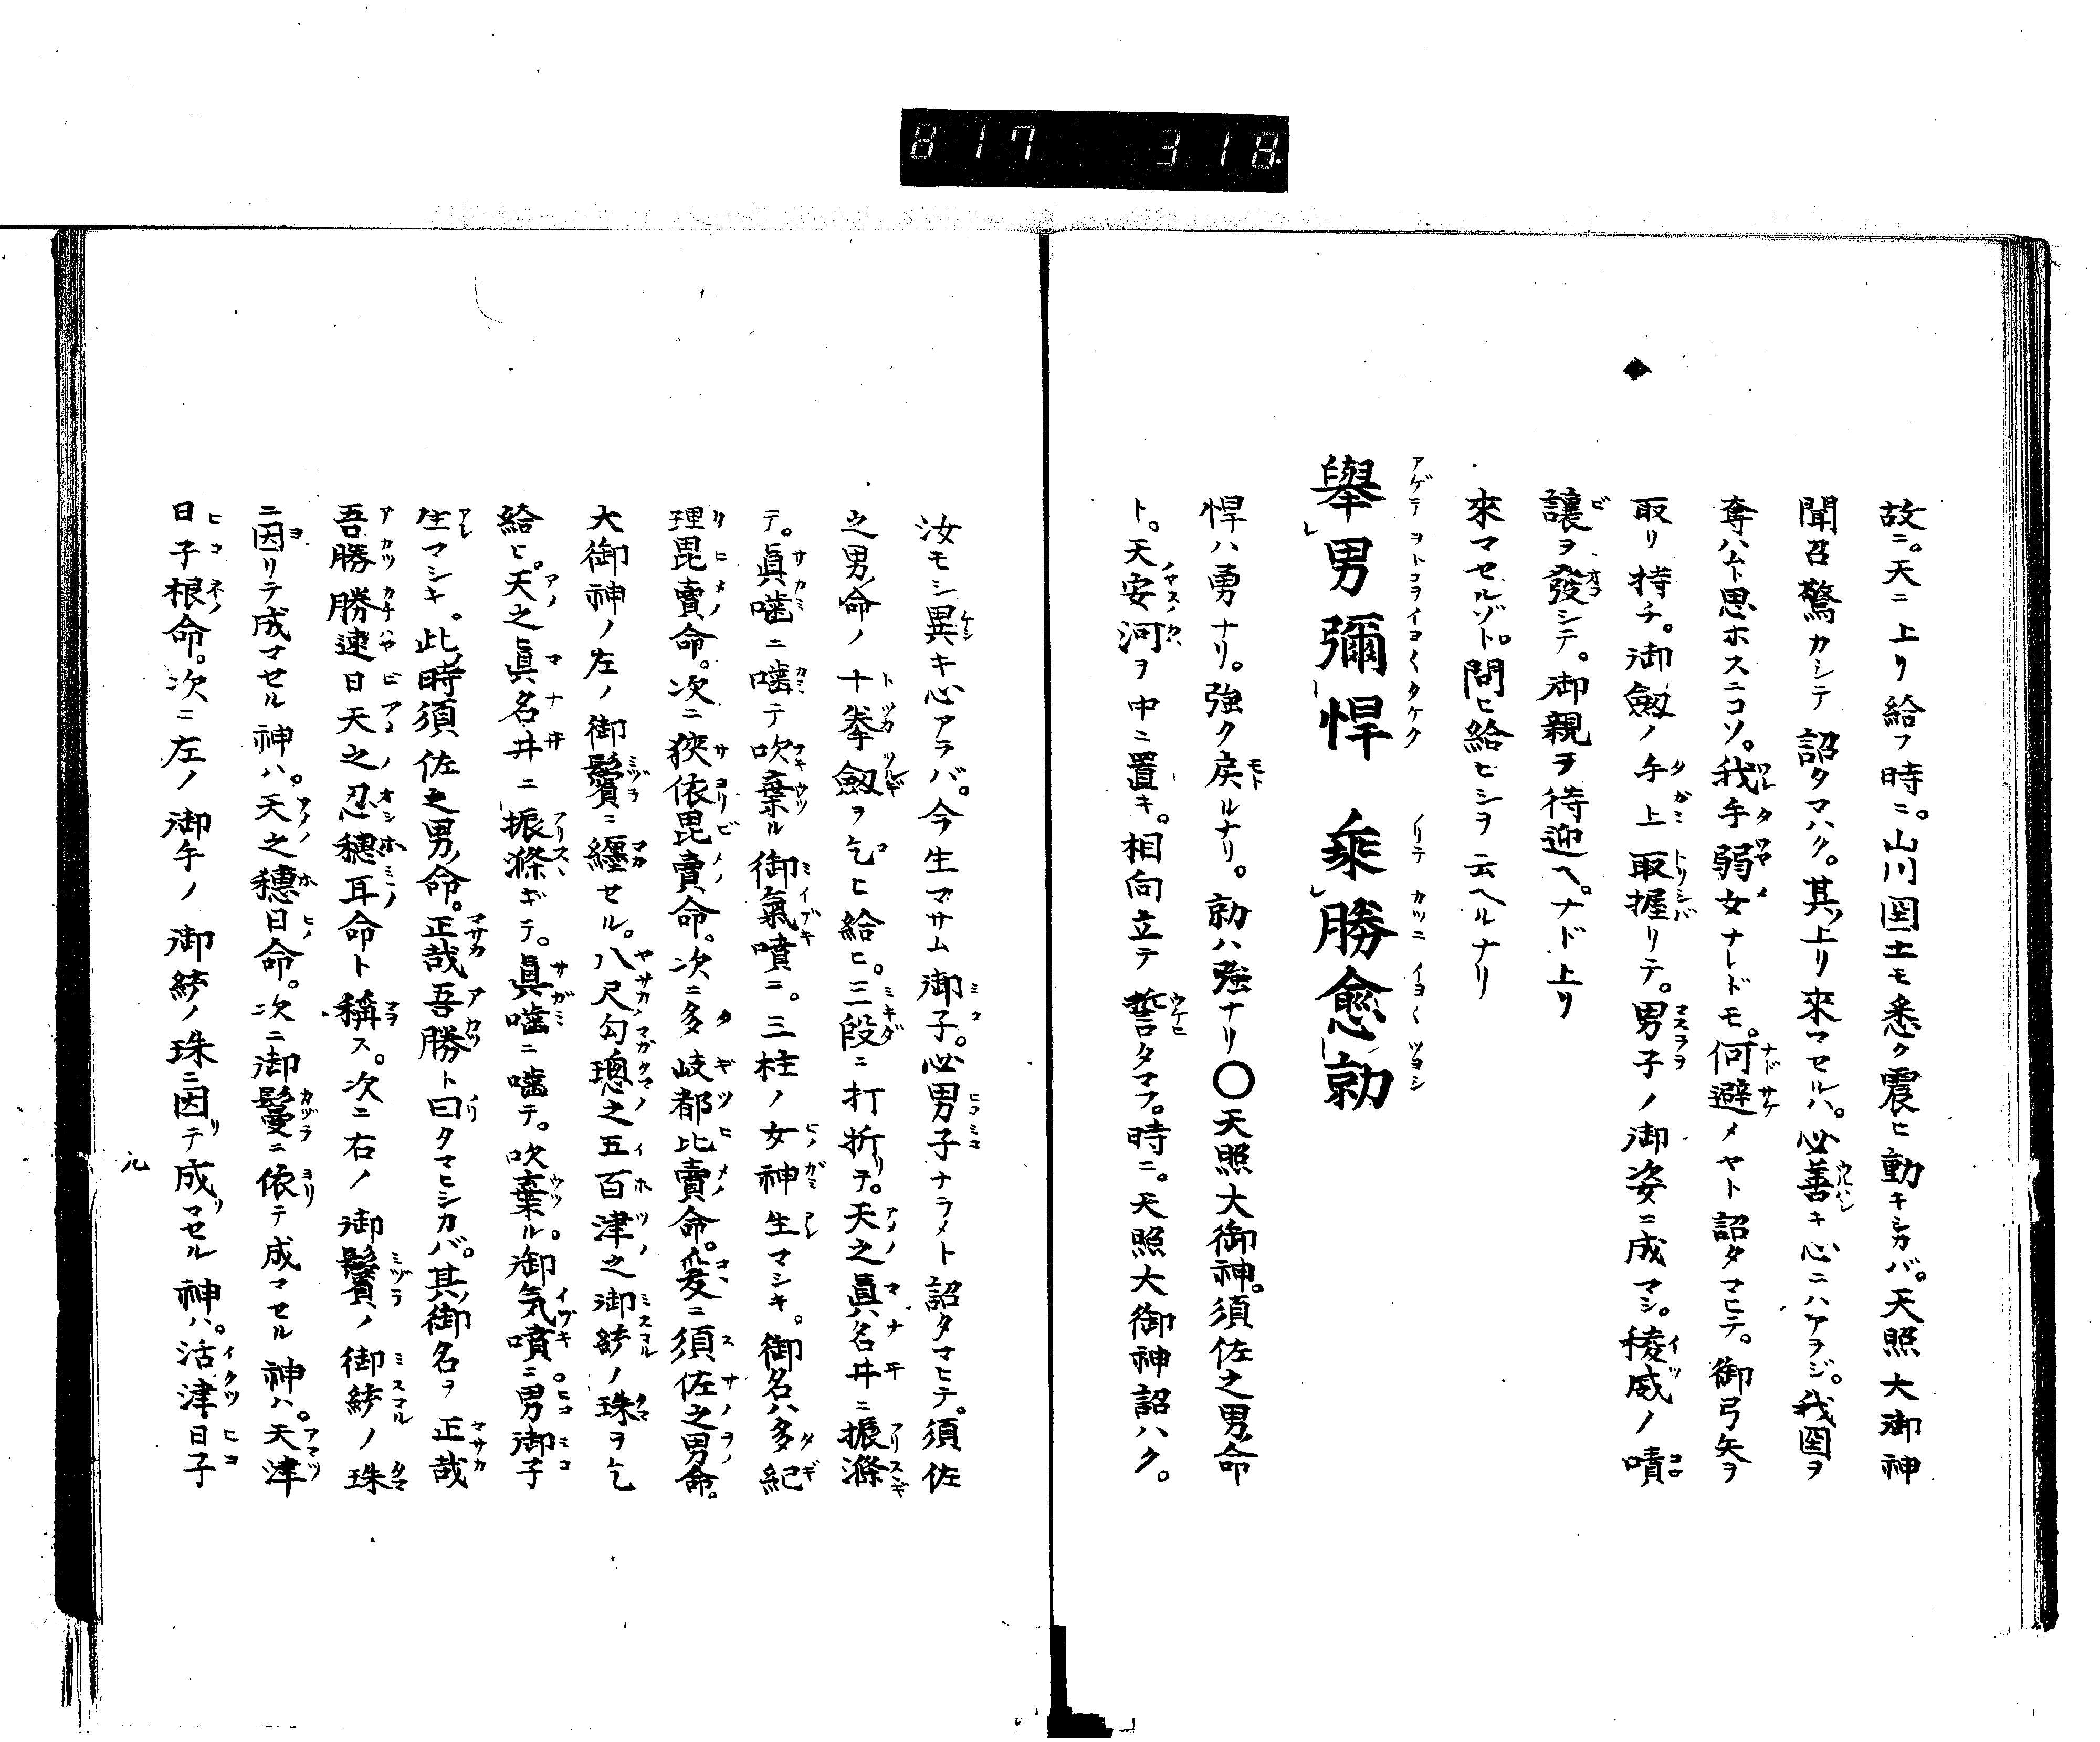 817 318.
故ニ。天ニ上リ給フ時ニ。山川国土モ悉ク震ヒ動キシカバ。天照大御神
聞召驚カシテ詔タマハク。其上リ來マセルハ。必善キ心ニハアラジ。我国ヲ
奪ハムト思ホスニコソ。我手弱女ナレドモ。何避メヤト詔タマヒテ。御弓矢ヲ
取リ持チ。御劔ノ手上取握リテ。男子ノ御姿ニ成マシ。稜威ノ嘖
讓ヲ發シテ。御親ヲ待迎ヘ。ナド上リ
來マセルゾト。問ヒ給ヒシヲ云ヘルナリ
擧男彌悍 乘勝愈勍
悍ハ勇ナリ。強ク戻ルナリ。勍ハ強ナリ〇天照大御神。須佐之男命
ト。天安河ヲ中ニ置キ。相向立テ誓タマフ。時ニ。天照大御神詔ハク。
汝モシ異キ心アラバ。今生マサム御子。必男子ナラメト詔タマヒテ。須佐
之男命ノ十拳劔ヲ乞ヒ給ヒ。三段ニ打折リテ。天之眞名井ニ振滌
テ。眞嚙ニ嚙テ吹棄ル御氣噴ニ。三柱ノ女神生マシキ。御名ハ多紀
理毘賣命。次ニ狹依毘賣命。次ニ多岐都比賣命。爰ニ須佐之男命。
大御神ノ左ノ御鬢ニ纒セル。八尺勾璁之五百津之御統ノ珠ヲ乞
給ヒ。天之眞名井ニ振滌ギテ。眞嚙ニ嚙テ。吹棄ル。御気噴ニ男御子
生マシキ。此時須佐之男命。正哉吾勝ト曰タマヒシカバ。其御名ヲ正哉
吾勝勝速日天之忍穗耳命ト稱ス。次ニ右ノ御鬢ノ御統ノ珠
ニ因リテ成マセル神ハ。天之穗日命。次ニ御鬘ニ依テ成マセル神ハ。天津
日子根命。次ニ左ノ御手ノ御統ノ珠ニ因リテ成リマセル神ハ。活津日子